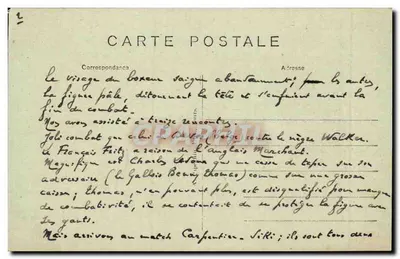 2
CARTE POSTALE
Correspondance
Adresse
le visage du boxeur saigne abondamment; les autres,
la figure pâle, détournent la tête et s'enfuient avant la
fin du combat.
Nous avons assisté à treize rencontres.
Joli combat que celui de contre le nègre Walker.
Le Français Fritz a raison de l'anglais Marchant.
Magnifique est Charles Ledoux qui ne cesse de taper sur son
adversaire (le Gallois Benny Thomas) comme sur une grosse
caisse; Thomas, n'en pouvant plus, est disqualifié pour manque
de combativité, il se contentait de se protéger la figure avec
ses gants.
Mais arrivons au match Carpentier-Siki; ils sont tous deux